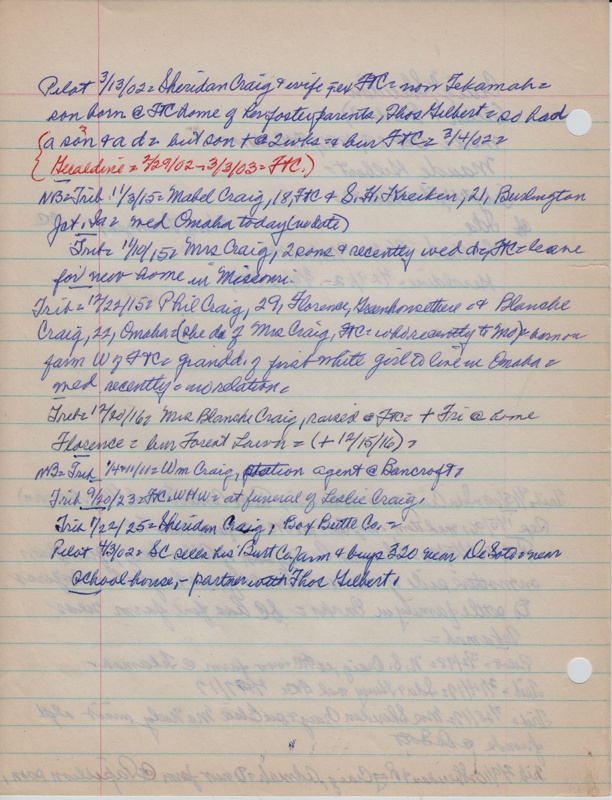 Pilot 3/13/02 = Sheridan Craig & wife, ex FtC = now Tekamah =
son born @ FtC home of her foster parents, Thos Gilbert = so had
(a son & a d = but son + @ 2 wks & bur FtC = 3/4/02 =
Geraldine = 2/29/02 - 3/3/03 = FtC.)
NB = Trib 11/3/15 = Mabel Craig, 18, FtC & S. H. Kreiken, 21, Burlington
Jct, Ia = wed Omaha today (
Trib = 11/10/15 = Mrs Craig, 2 sons & recently wed d, FtC = leave
for new home in Missouri.
Trib = 12/22/15 = Phil Craig, 29, Florence, & Blanche
Craig, 22, Omaha = (she da of Mrs Craig, FtC = who recently to Mo) = born on
farm W of FtC = grandd. of first white girl to live in Omaha =
wed recently = no relation =
Trib = 12/20/16 = Mrs Blanche Craig, raised @ FtC = + Fri @ home
Florence = bur Forest Lawn = (+ 12/15/16) =
NB = Trib 1/4/11 = Wm Craig, station agent @ Bancroft =
Trib 9/20/23 = FtC. WHW = at funeral of Leslie Craig.
Trib 7/22/25 = Sheridan Craig, Box Butte Co. =
Pilot 4/3/02 = SC sells his Burt Co farm & buys 320 near DeSoto = near
school house, - partner with Thos Gilbert.